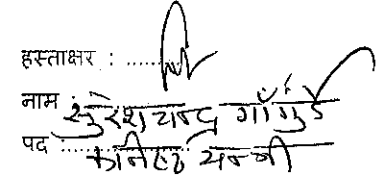 हस्ताक्षर : ........
नाम : सुरेशचन्द्र गाँगुर्डे
पद : ........ कनिष्ठ यन्त्री